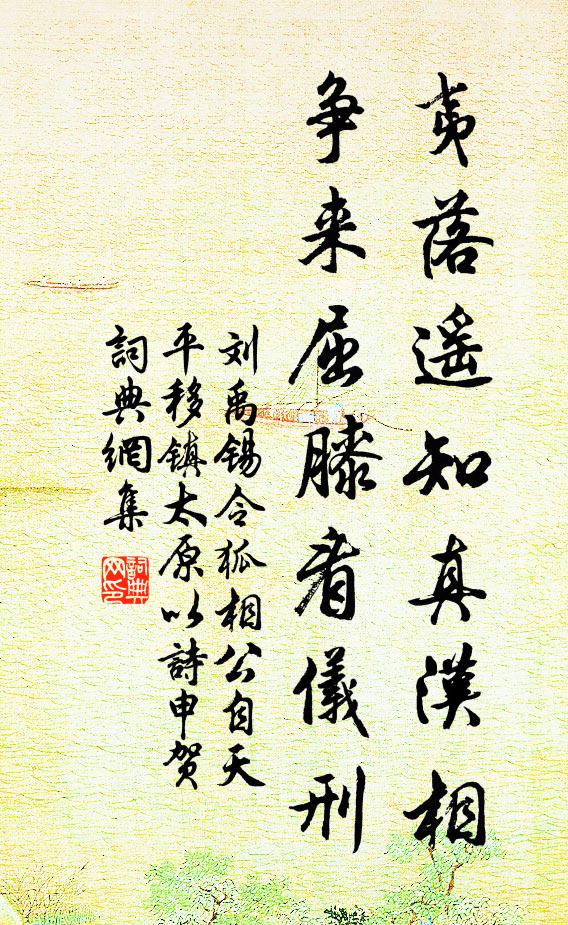 夷落遥知真漢相
争来屈膝看儀刑
刘禹锡令狐相公自天
平移鎮太原以詩申贺
詞典網集
詞典网印